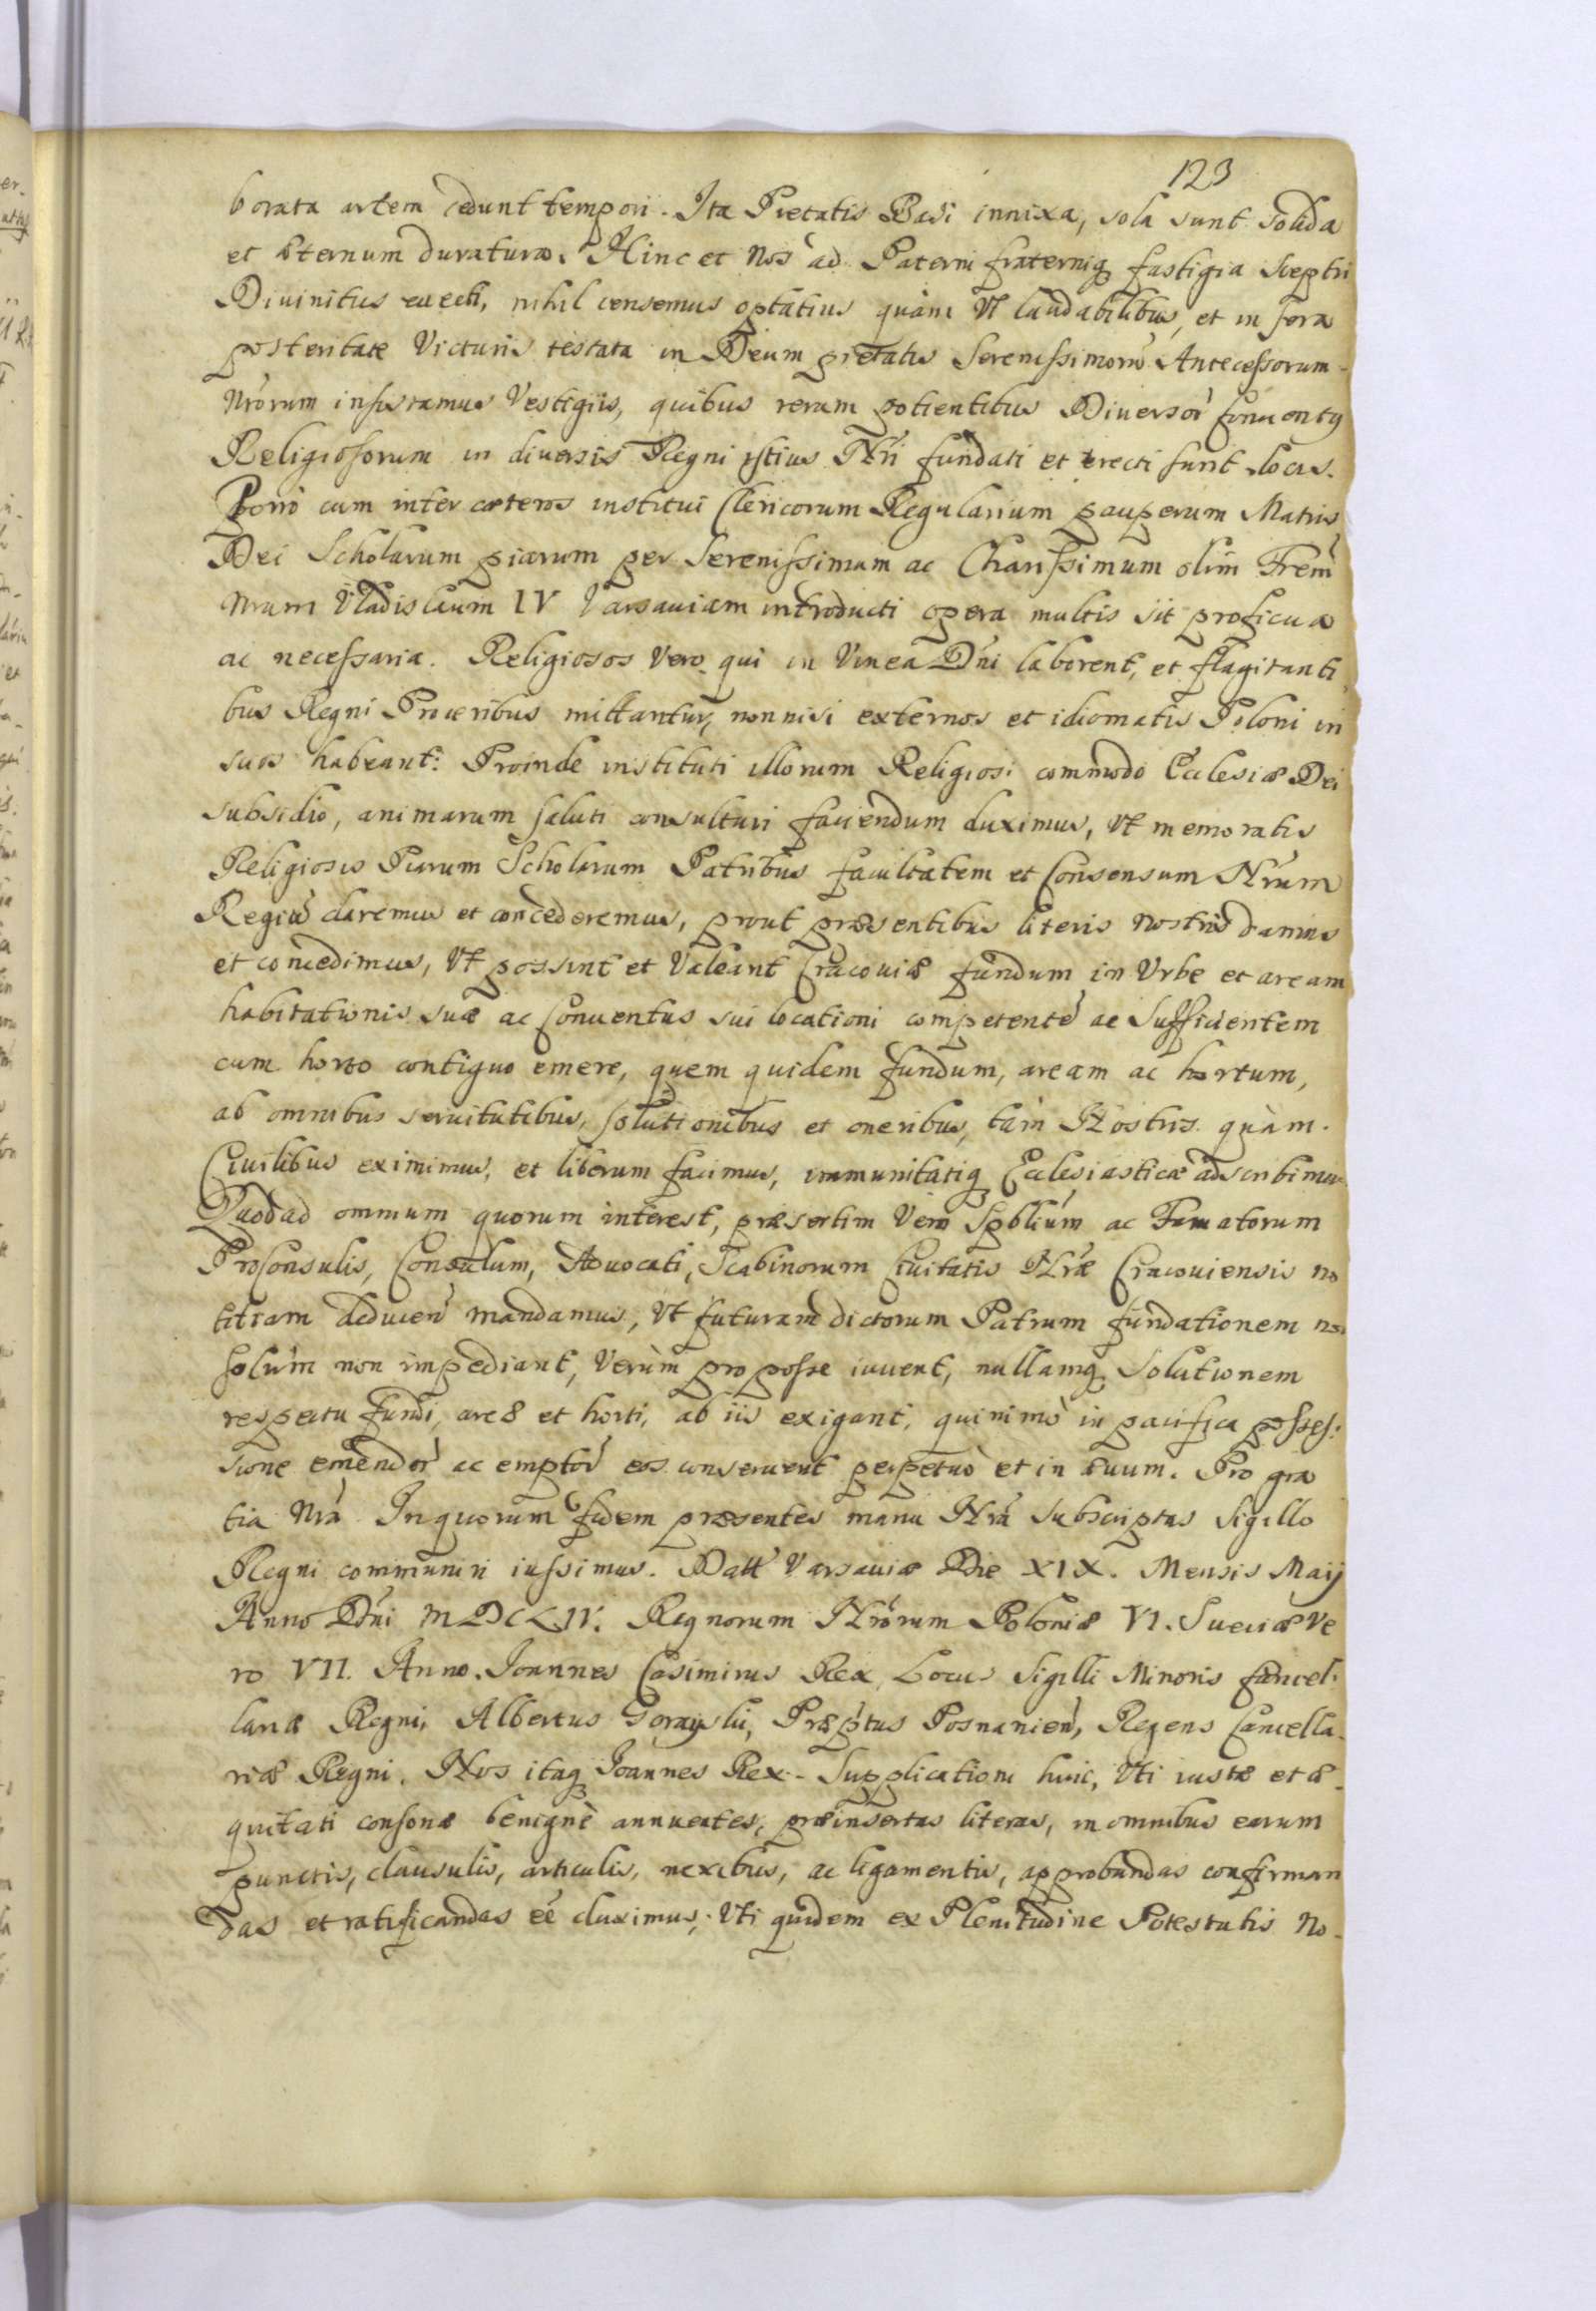 123
borata artem cedunt tempori. Ita Pietatis Basi innixa, sola sunt solida
et æternum duratura. Hinc et Nos ad Paterni fraterniq fastigia Sceptri
Diuinitus euecti, nihil censemus optatius quàm Vt laudabilibus, et in sera
posteritate Victuris testata in Deum pietatis Serenissimorũ Antecessorum
Nrorum insistamus Vestigiis, quibus rerum potientibus Diuersor Conuentq
Religiosorum in diuersis Regni istius Nri fundati et erecti sunt locis.
Porrò cum inter cæteros institui Clericorum Regularium pauperum Matris
Dei Scholarum piarum per Serenissimum ac Charissimum olim Frem
Nrum Vladislaum IV Varsauiam introducti opera multis sit proficua
ac necessaria. Religiosos Vero qui in Vinea Dni laborent, et flagitanti
bus Regni Proceribus mittantur, non nisi externos et idiomatis Poloni in
suos habeant: Proinde instituti illorum Religiosi commodo Ecclesiæ Dei
subsidio, animarum saluti consulturi faciendum duximus, Vt memoratis
Religiosis Piarum Scholarum Patribus facultatem et Consensum Nrum
Regiũ daremus et concederemus, prout præsentibus literis nostris damus
et concedimus, Vt possint et Valeant Cracouiæ fundum in Vrbe et aream
habitationis suæ ac Conuentus sui locationi competentẽ ac Sufficientem
cum horto contiguo emere, quem quidem fundum, aream ac hortum,
ab omnibus seruitutibus, solutionibus et oneribus, tàm Nostris quàm
Ciuilibus eximimus, et liberum facimus, immunitatiq Ecclesiasticæ adscribimus
Quod ad omnium quorum interest, præsertim Vero Spblium ac Famatorum
ProConsulis, Consulum, Aduocati, Scabinorum Ciuitatis Nræ Cracouiensis no
titiam deducen mandamus, Vt futuram dictorum Patrum fundationem non
solùm non impediant, Verùm pro posse iuuent, nullamq Solutionem
respectu fundi, areæ et horti, ab iis exigant, quinimò in pacifica posses:
sione emendor ac emptor eos conseruent perpetuò et in æuum. Pro gra
tia Nra In quorum fidem præsentes manu Nra subscriptas Sigillo
Regni communiri iussimus. Datt Varsauiæ Die XIX. Mensis Maij
Anno Dni MDCLIV. Regnorum Nrorum Poloniæ VI. Sueciæ Ve
ro VII. Anno. Joannes Casimirus Rex, Locus Sigilli Minoris Cancel:
lariæ Regni, Albertus Præptus Posnanien, Regens Cancella
riæ Regni. Nos itaq Joannes Rex - Supplicationi huic, Vti iustæ et æ
quitati consonæ benignè annuentes, præinsertas literas, in omnibus earum
punctis, clausulis, articulis, nexibus, ac ligamentis, approbandas confirman
das et ratificandas eẽ duximus; Vti quidem ex Plenitudine Potestatis No-